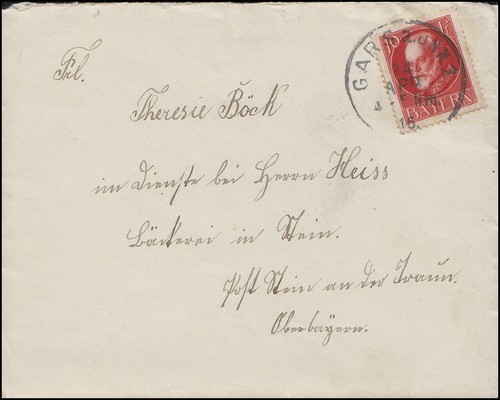 Frl.
Theresie Böck
im Dienste bei Herrn Heiss
Bäckerei in Stein.
Post Stein an der Traun.
Oberbayern.
10
BAYERN
GARS
16.